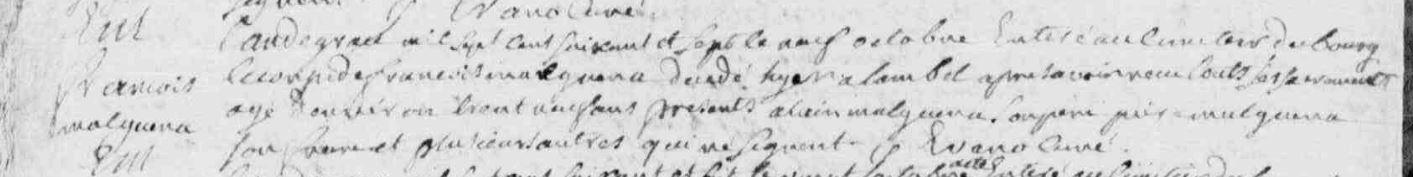 Evanno Curé.
Ent
francois
malquena
L'an de grace mil sept cent soixant et sept le neuf octobre Enteré au cimetere du bourg
le corps de francois malquena decedé hyer a lambel apres avoir recu touts ses sacrements
agé d'environ trent ans presents alain malquena son pere pierre malquena
son frere et plusieurs autres qui ne signent Evano Curé.
Ent